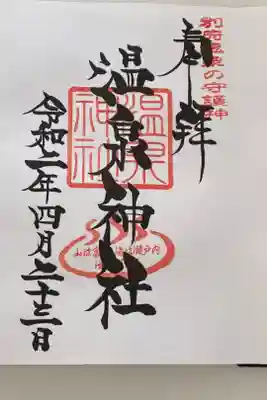 別府温泉の守護神
奉拝
温泉神社
温泉神社
令和二年四月二十三日